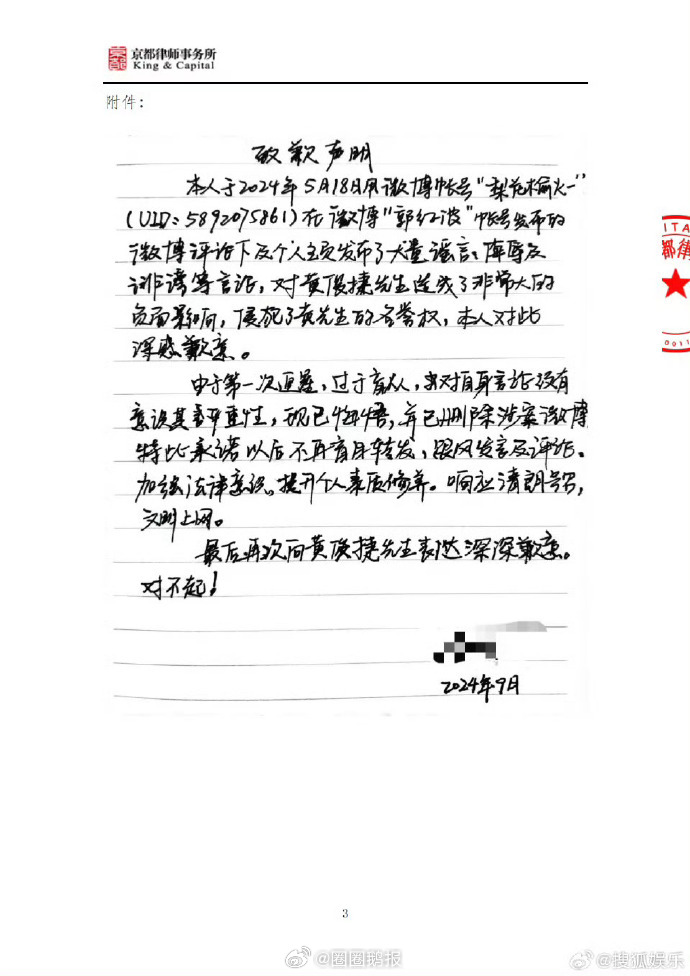 京都律师事务所
King & Capital
附件：
致歉声明
本人于2024年5月18日用微博帐号“梨花榆火一”
(UID:5892075861)在微博“郭红波”帐号发布的
微博评论下及个人主页发布了大量谣言、侮辱及
诽谤等言论，对黄俊捷先生造成了非常大的
负面影响，侵犯了黄先生的名誉权，本人对此
深感歉意。
由于第一次追星，过于盲从，当对自身言论没有
意识其严重性，现已悔悟，并已删除涉案微博
特此承诺以后不再盲目转发，跟风发言及评论。
加强法律意识。提升个人素质修养。响应清朗号召，
文明上网。
最后再次向黄俊捷先生表达深深歉意。
对不起！
2024年9月
3
@圈圈鹅报
@搜狐娱乐